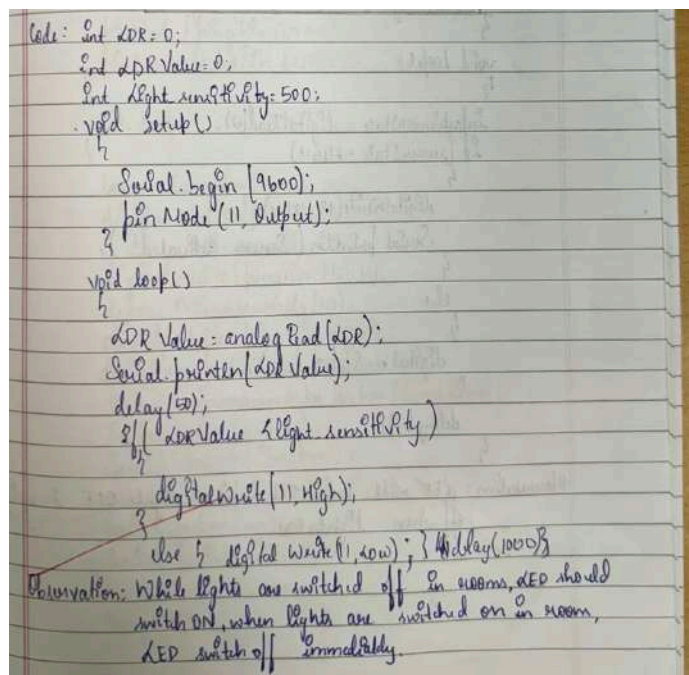 Code: int LDR = 0;
int LDR Value = 0;
int light sensitivity = 500;
void setup()
{
Serial.begin (9600);
pin Mode (11, Output);
}
void loop()
{
LDR Value = analog Read (LDR);
Serial.println (LDR Value);
delay (50);
if (LDR Value < light sensitivity)
{
digital write (11, High);
}
else { digital write (11, LOW); } delay (1000) }
Observation: While lights are switched off in rooms, LED should
switch ON, when lights are switched on in room,
LED switch off immediatly.